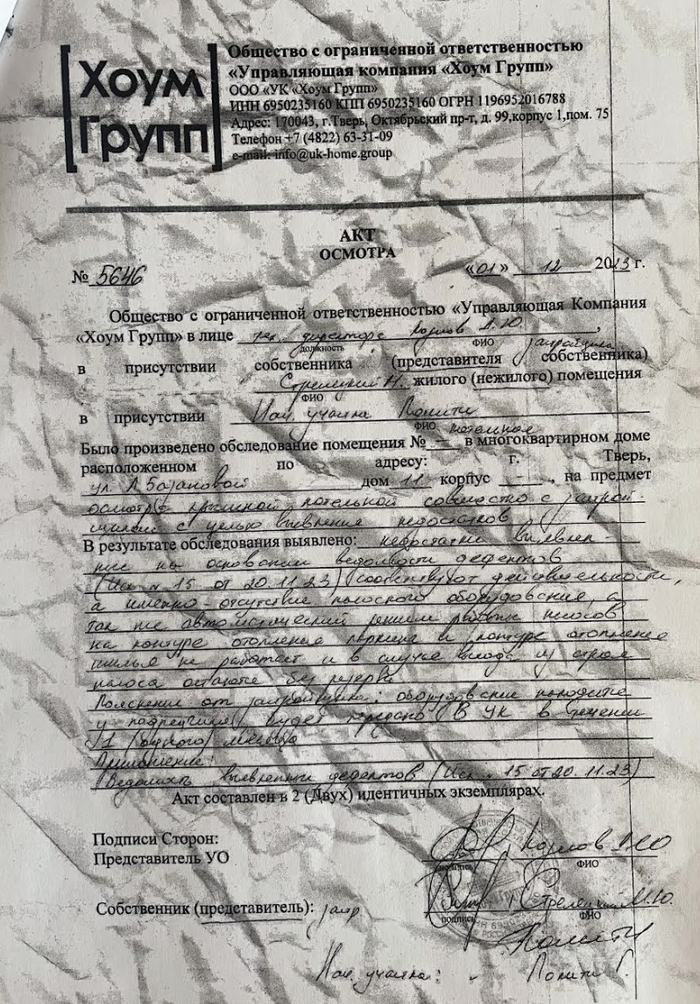 Хоум
Групп
Общество с ограниченной ответственностью
«Управляющая компания «Хоум Групп»
ООО «УК «Хоум Групп»
ИНН 6950235160 КПП 6950235160 ОГРН 1196952016788
Адрес: 170043, г.Тверь, Октябрьский пр-т, д. 99,корпус 1,пом. 75
Телефон +7 (4822) 63-31-09
e-mail: info@uk-home.group
АКТ
ОСМОТРА
№ 5646 «01» 12 2023 г.
Общество с ограниченной ответственностью «Управляющая Компания
«Хоум Групп» в лице директора Козлов А.Ю ,
должность ФИО застройщика
в присутствии собственника (представителя собственника)
Стрелецкий Н. жилого (нежилого) помещения
ФИО
в присутствии Нач. участка Помити
ФИО котельная
Было произведено обследование помещения № — в многоквартирном доме
расположенном по адресу: г. Тверь,
ул. Л Базановой дом 11 корпус - , на предмет
осмотра крышной котельной совместно с застрой-
щиком с целью выявления недостатков
В результате обследования выявлено: недостатки выявлен-
ные на основании ведомости дефектов
(Исх. № 15 от 20.11.23) соответствуют действительности,
а именно - отсутствие насосного оборудования, а
так же автоматический режим насосов
на контуре отопления паркинга и контуре отопления
жилья не работает и в случае выхода из строя
насоса остаются без резерва
Пояснения от застройщика: оборудование находится
у подрядчика, будет передано в УК в течении
1 (одного) месяца
Приложение:
Ведомость выявленных дефектов (Исх. № 15 от 20.11.23)
Акт составлен в 2 (Двух) идентичных экземплярах.
Подписи Сторон:
Представитель УО Козлов А.Ю
ФИО
Собственник (представитель): застр Стрелецкий М.Ю.
подпись ФИО
Нач. участка: Помити Г.